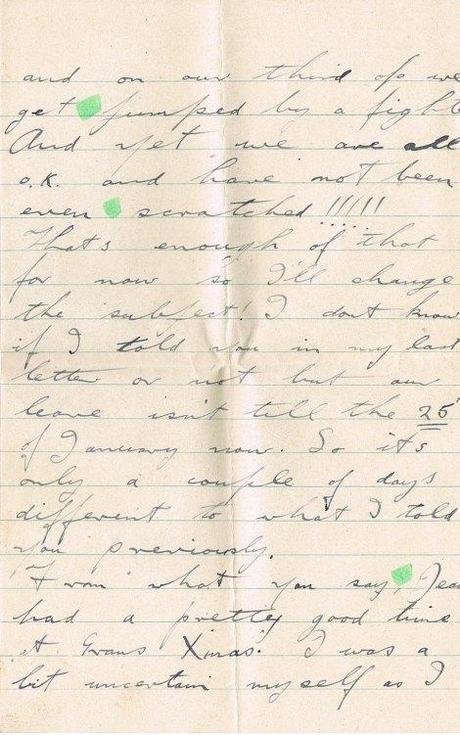 and on our third op we
get jumped by a fight
And yet we are all
o.k. and have not been
even scratched !!!!!
Thats enough of that
for now so I'll change
the subject! I dont know
if I told you in my last
letter or not but our
leave isn't till the 25
of January now. So it's
only a couple of days
different to what I told
you previously.
From what you say, Jean
had a pretty good time
at Grans Xmas. I was a
bit uncertain myself as I